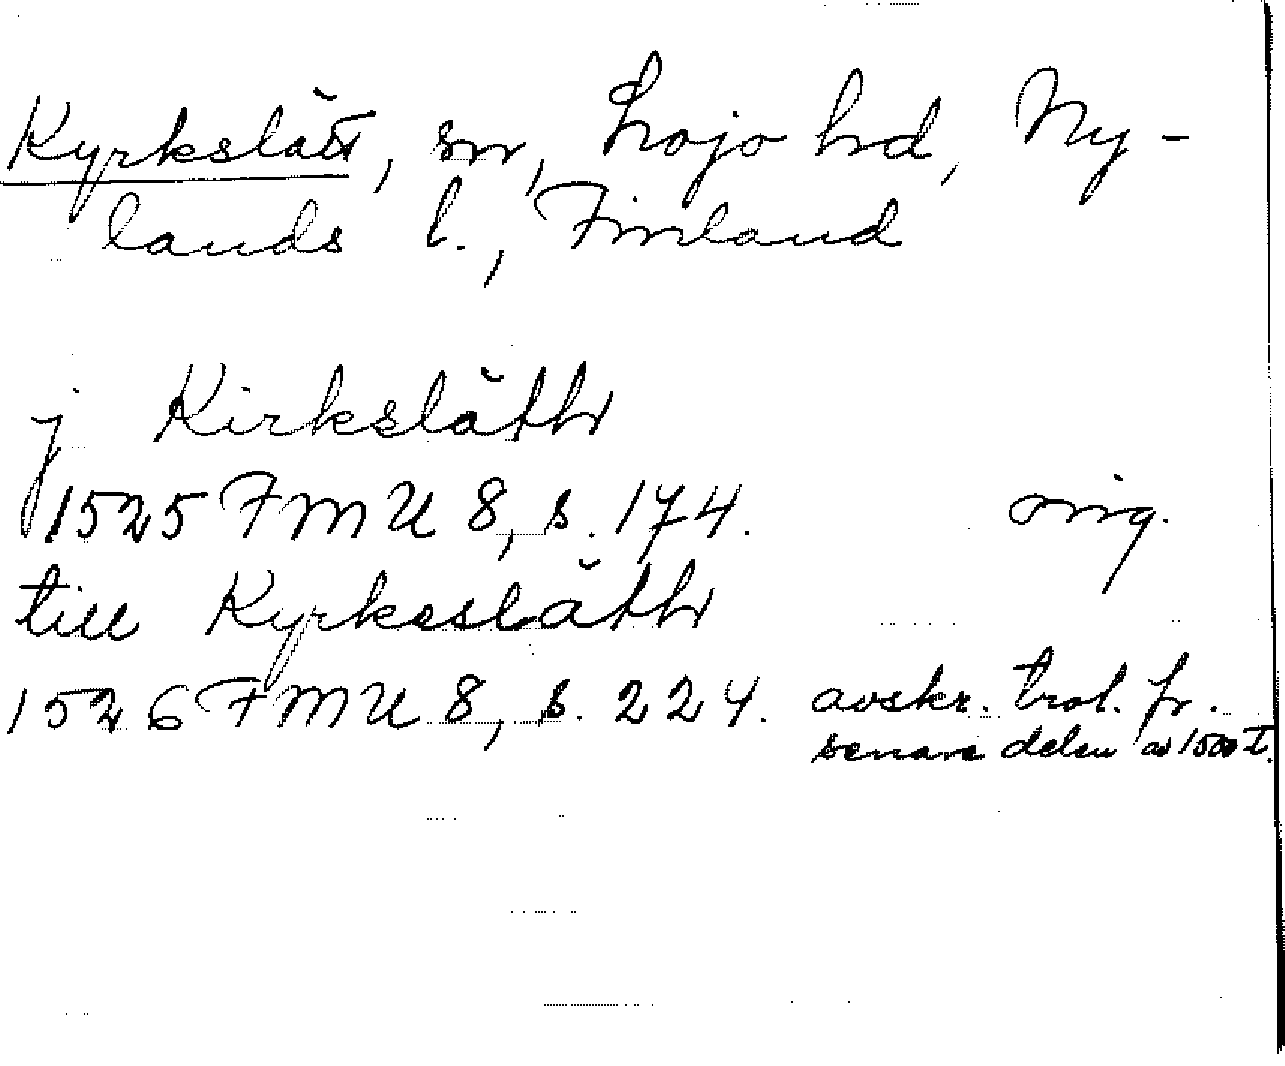 Kyrkslätt, sn, Lojo hd, Ny-
lands l., Finland
j Kirksläth
1525 FMU 8, s. 174. orig.
till Kyrkesläth
1526 FMU 8, s. 224. avskr. trol. fr.
senare delen av 1500 t.